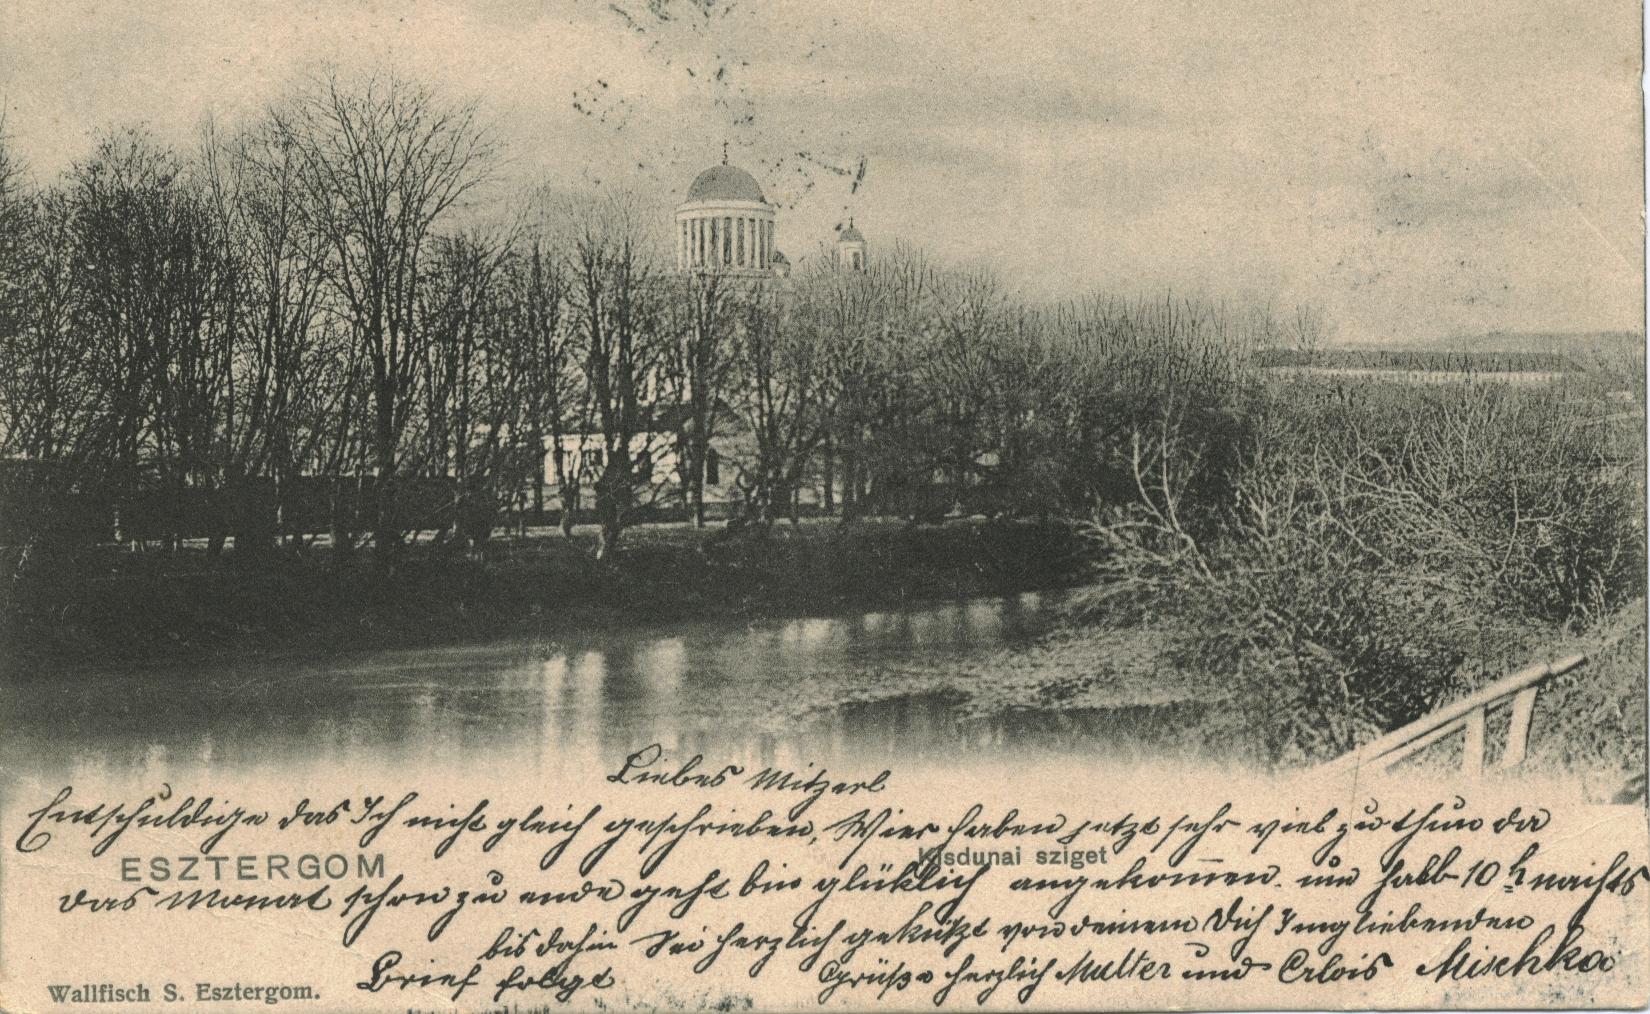 Liebes Mitzerl
Entschuldige das Ich nicht gleich geschrieben, Wier haben jetzt sehr viel zu thun da
ESZTERGOM Kisdunai sziget
das Monat schon zu ende geht bin glücklich angekom̅en. um halb 10 h nachts
bis dahin Sei herzlich geküßt von deinem Dich Inigliebenden
Brief folgt Grüße herzlich Mutter und Mischka
Wallfisch S. Esztergom.